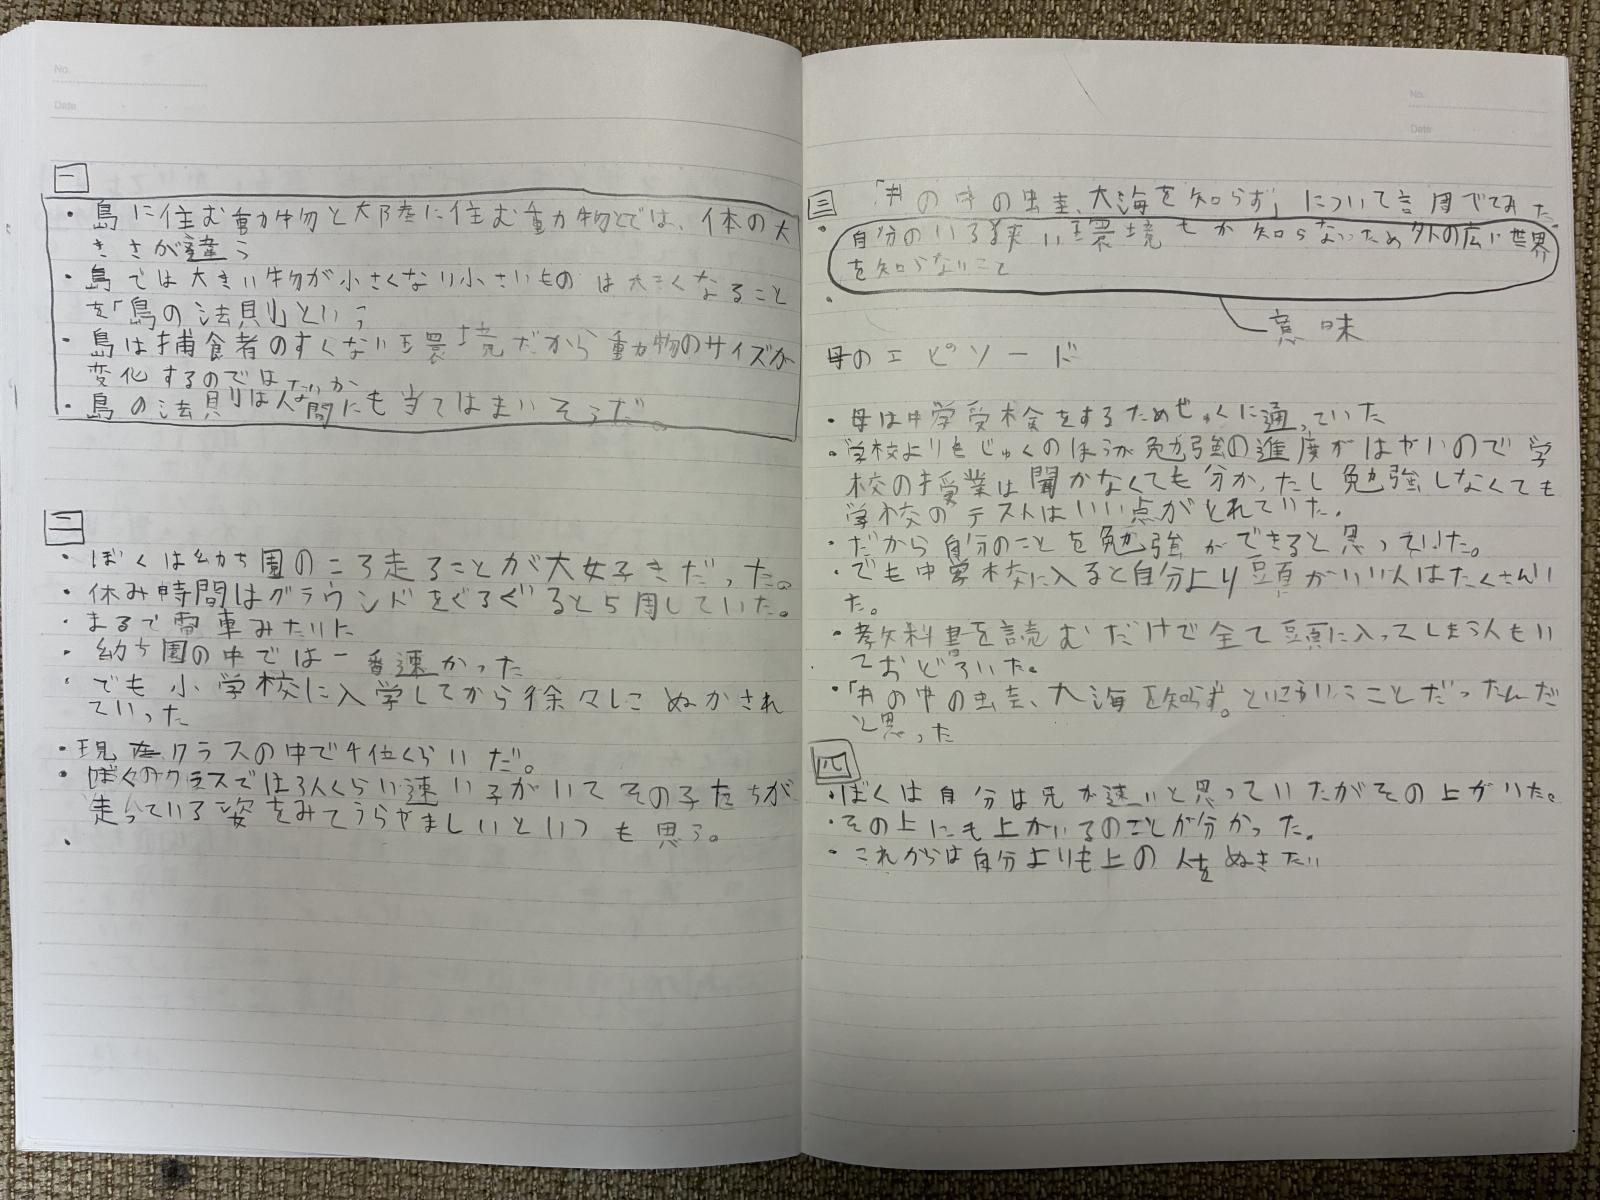 No.
Date
一
・島に住む動物と大陸に住む動物とでは、体の大
きさが違う
・島では大きい物が小さくなり小さいものは大きくなること
を「島の法則」という
・島は捕食者のすくない環境だから動物のサイズが
変化するのではないか
・島の法則は人間にも当てはまいそうだ。
二
・ぼくは幼ち園のころ走ることが大好きだった。
・休み時間はグラウンドをぐるぐると5周していた。
・まるで電車みたいに
・幼ち園の中では一番速かった
・でも小学校に入学してから徐々にぬかされ
ていった
・現在クラスの中で4位くらいだ。
・ぼくのクラスでは3人くらい速い子がいてその子たちが
走っている姿をみてうらやましいといつも思う。
・
No.
Date
三 「井の中の蛙、大海を知らず」について調べてみた
・自分のいる狭い環境しか知らないため外の広い世界
を知らないこと
・
意味
母のエピソード
・母は中学受検をするためじゅくに通っていた
・学校よりもじゅくのほうが勉強の進度がはやいので学
校の授業は聞かなくても分かったし勉強しなくても
学校のテストはいい点がとれていた。
・だから自分のことを勉強ができると思っていた。
・でも中学校に入ると自分より頭がいい人はたくさんい
た。
・教科書を読むだけで全て頭に入ってしまう人もい
ておどろいた。
・「井の中の蛙、大海を知らず。とはこういうことだったんだ
と思った
四
・ぼくは自分は足が速いと思っていたがその上がいた。
・その上にも上がいるのことが分かった。
・これからは自分よりも上の人をぬきたい